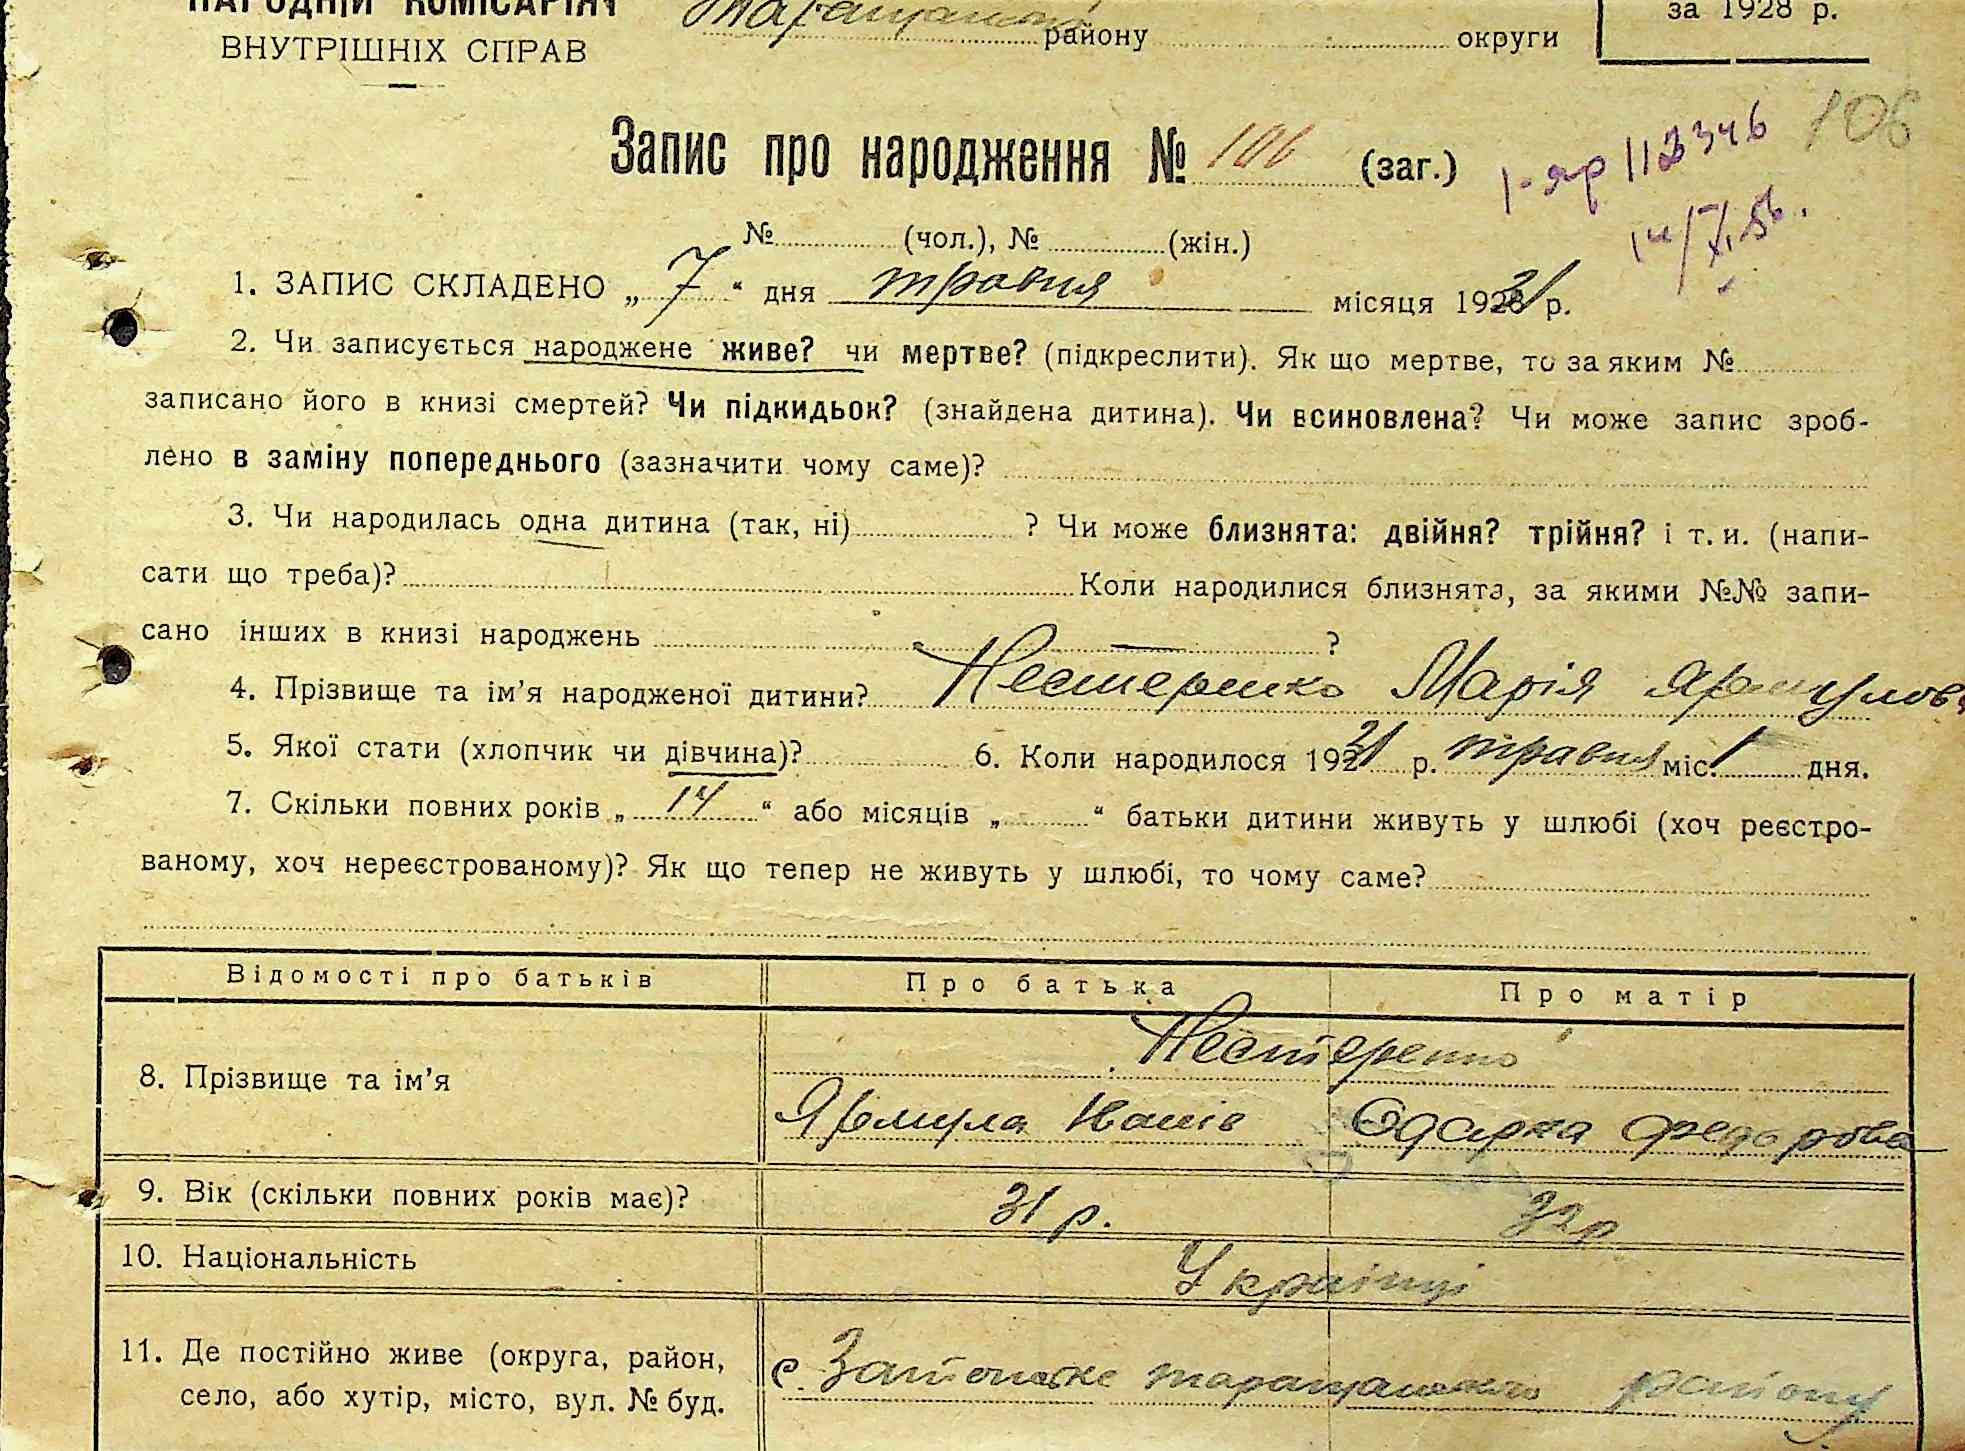 НАРОДНІЙ КОМІСАРІЯТ за 1928 р.
ВНУТРІШНІХ СПРАВ району округи
Запис про народження № 106 (заг.) 106
№ (чол.), № (жін.)
1. ЗАПИС СКЛАДЕНО „ 7 “ дня травня місяця 1931 р.
2. Чи записується народжене живе? чи мертве? (підкреслити). Як що мертве, то за яким №
записано його в книзі смертей? Чи підкидьок? (знайдена дитина). Чи всиновлена? Чи може запис зроб-
лено в заміну попереднього (зазначити чому саме)?
3. Чи народилась одна дитина (так, ні) ? Чи може близнята: двійня? трійня? і т. и. (напи-
сати що треба)? Коли народилися близнята, за якими №№ запи-
сано інших в книзі народжень — ?
4. Прізвище та ім’я народженої дитини? Нестеренко Марія
5. Якої стати (хлопчик чи дівчина)? 6. Коли народилось 1931 р. травня міс. 1 дня.
7. Скільки повних років „ 14 “ або місяців „ “ батьки дитини живуть у шлюбі (хоч реєстро-
ваному, хоч нереєстрованому)? Як що тепер не живуть у шлюбі, то чому саме?
Відомості про батьків Про батька Про матір
Нестеренко
8. Прізвище та ім’я
Ярмула Іванів Одарка Федорова
9. Вік (скільки повних років має)? 31 р. 32 р
10. Національність Українці
11. Де постійно живе (округа, район, с. таращанського району
село, або хутір, місто, вул. № буд.